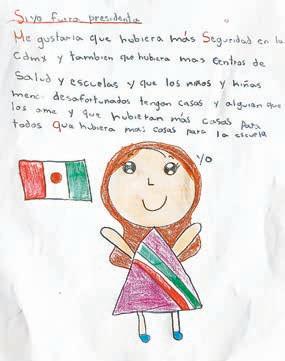 Si yo fuera presidenta
Me gustaria que hubiera más Seguridad en la
Cdmx y tambien que hubiera mas Centros de
Salud y escuelas y que los niños y niñas
menos desafortunados tengan casas y alguien que
los ame y que hubieran más casas para
todos Que hubiera mas cosas para la escuela
yo